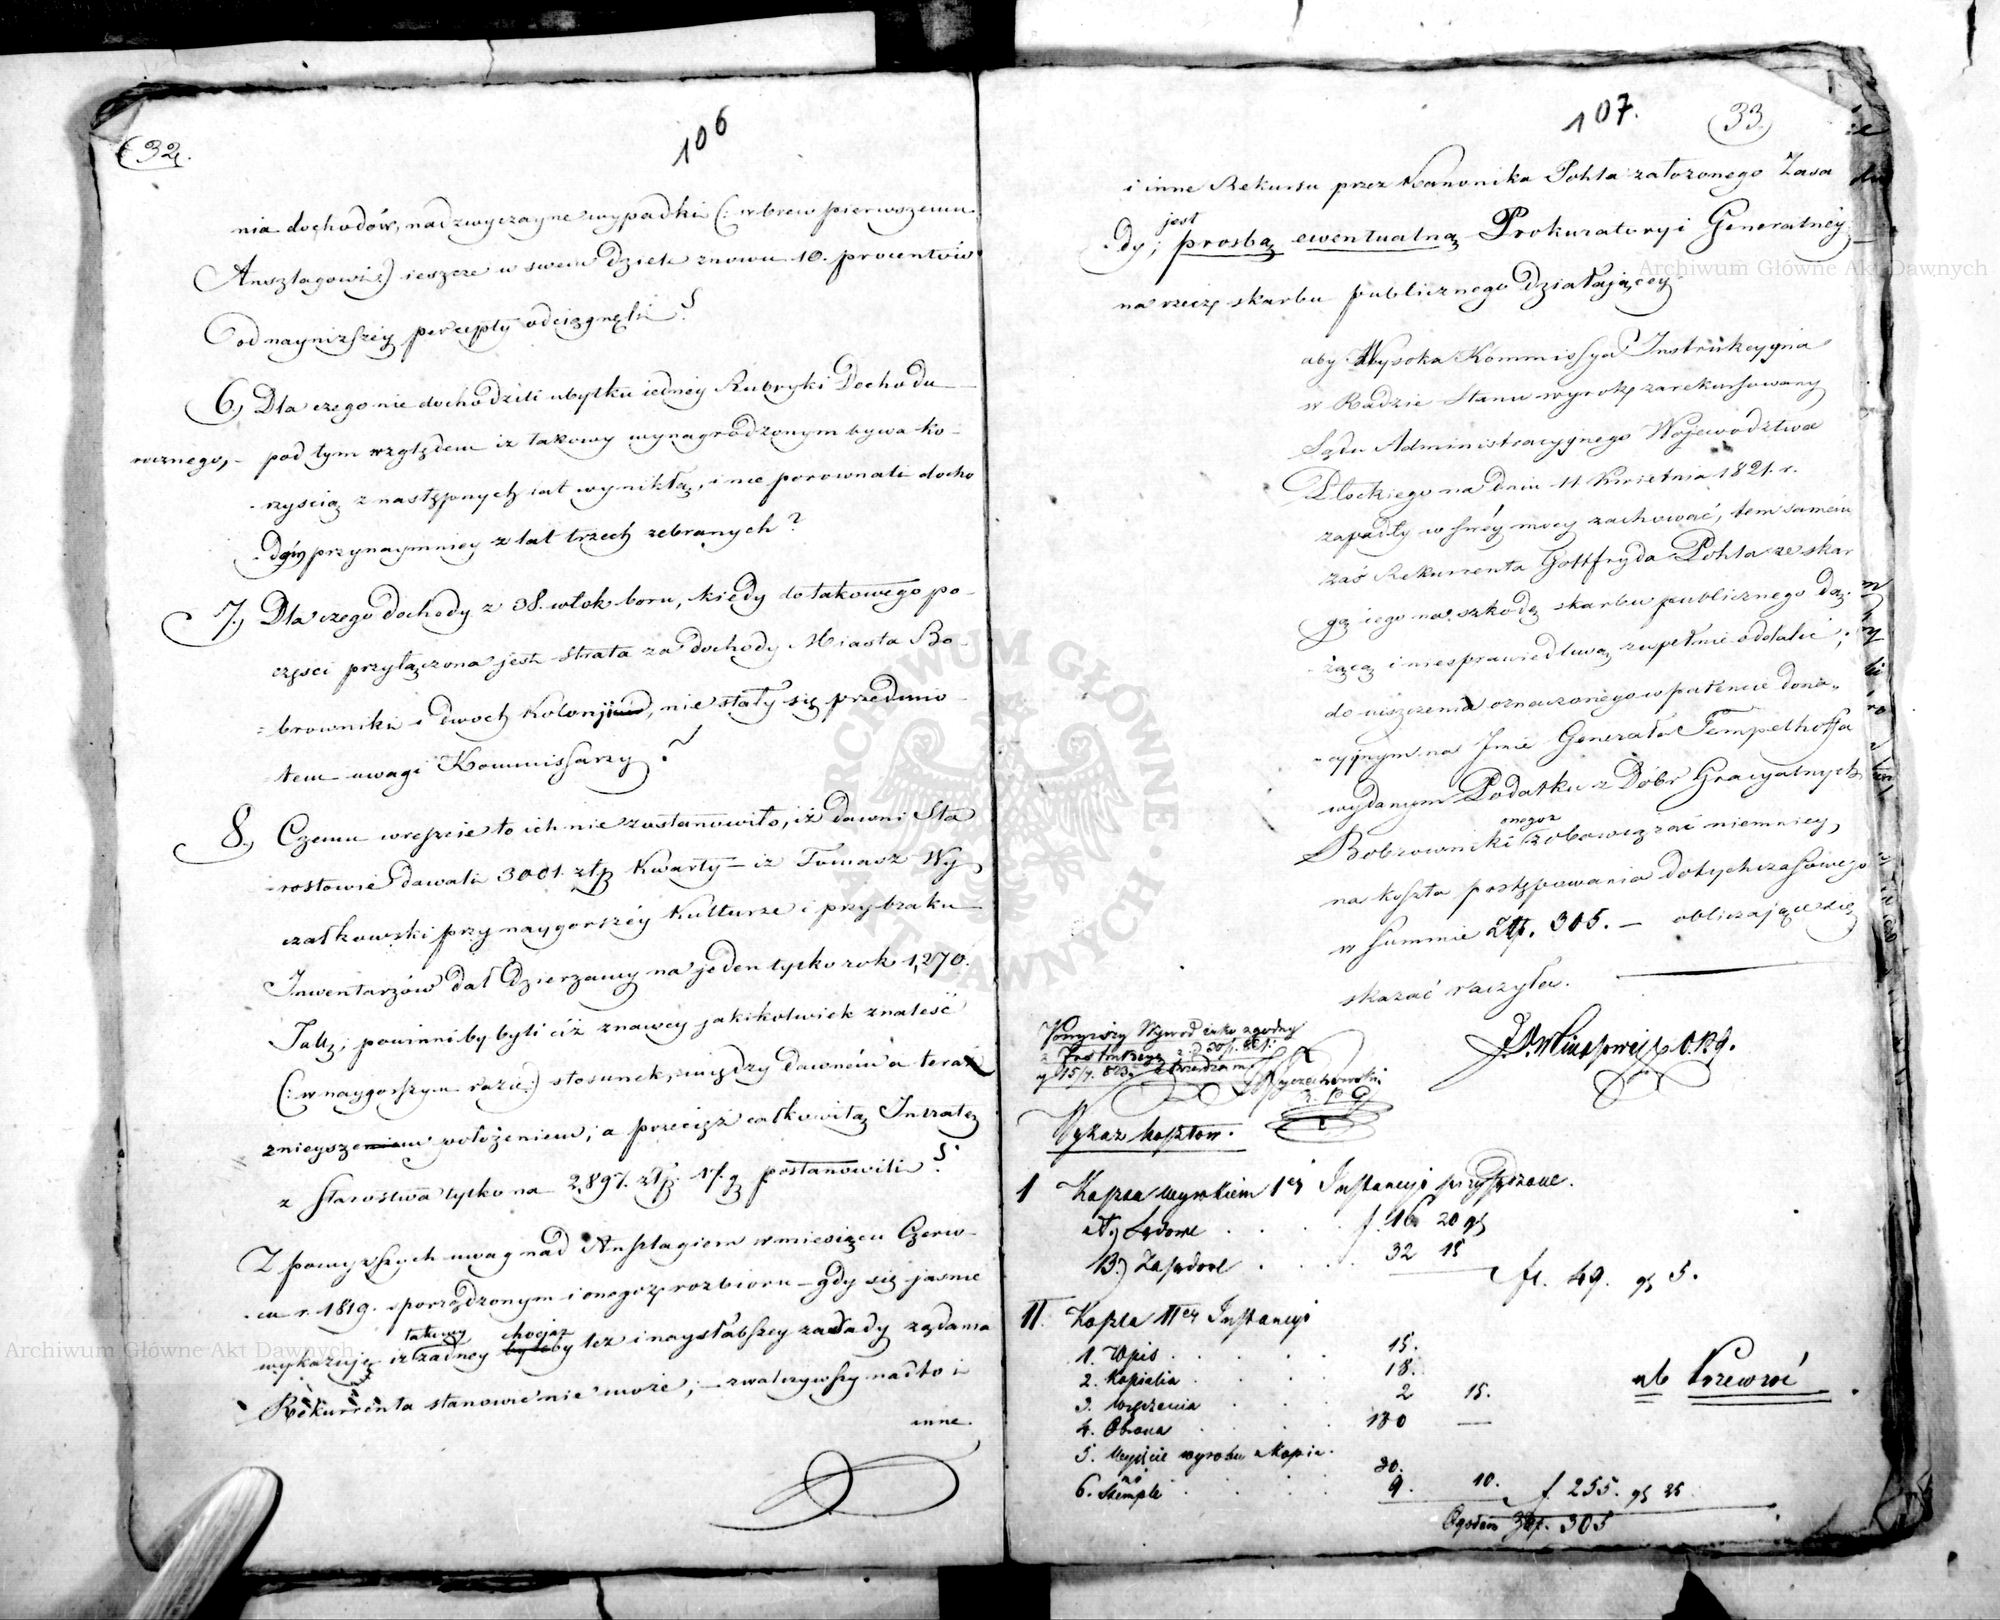 106
(32.
nia dochodów, nadzwyczayne wypadki (: wbrew pierwszemu
Ansztagowi :) ieszcze w swem dziele znowu 10. procentów
od nayniższey percepty odciągnęli?
6.) Dla czego nie dochodzili ubytku iedney Rubryki Dochodu
rocznego, - pod tym względem iż takowy wynagrodzonym bywa ko-
rzyścią z następnych lat wynikłą, i nie porownali docho
dów przynaymniey z lat trzech zebranych?
7.) Dla czego dochody z 38. włok boru, kiedy do takowego po-
częsci przyłączona jest strata za dochody Miasta Bo-
browniki i dwoch Kolonji, nie stały się przedmio-
tem uwagi Kommissarzy?
8.) Czemu wreszcie to ich nie zastanowiło, iż dawni Sta
rostowie dawali 3001. złp Kwarty - iż Tomasz Wy
czałkowski przy naygorszéy Kulturze i przy braku
Inwentarzów dał Dzierzawy na jeden tylko rok 1,270.
Tal; powinni by byli ciż znawcy jakikolwiek znaleść
(: w naygorszym razie :) stosunek, między dawném a teraz
znieyszeniem położeniem; a przecięż całkowitą Intratę
z Starostwa tylko na 2,897. złp. 17. g postanowili?
Z powyższych uwag nad Anszlagiem w miesiącu Czerw-
cu r. 1819. sporządzonym i onegoż rozbioru - gdy się jasnie
takowy chociaż
wykazuje iż żadney byłoby też i naysłabszey zasady żądania
Rekurrenta stanowić nie może; - zwalczywszy nadto i
inne
107.
(33.)
i inne Rekursu przez Kanonika Pohla założonego Zasa
jest
dy; prosbą ewentualną Prokuratoryi Generalnéy
na rzecz skarbu publicznego działającey
aby Wysoka Kommissya Instrukcyyna
w Radzie Stanu wyrok zarekursowany
Sądu Administracyynego Województwa
Płockiego na dniu 11 Kwietnia 1821. r.
zapadły w swéy mocy zachować, tem samém
zaś Rekurrenta Gottfryda Pohla ze skar
gą iego na szkodę skarbu publicznego dą-
żącą i niesprawiedliwą zupełnie oddalić;
do uiszczenia oznaczonego w patencie dona-
cyjnym na Imie Generała Tempelhoffa
wydanym Podatku z Dóbr Gracyalnych
onegoz
Bobrowniki zobowiązać niemniey,
na koszta postępowania dotychczasowego
w summie Złp. 305. - obliczające się
skazać raczyła.
Powyższy Wywod iako zgodny
Wykaz kosztow.
I Koszta wyrokiem 1ey Instancyi przysądzone.
A) Sądowe . . . . f. 16 20 g
B.) Zasądowe . . . . 32 15
fl. 49. g 5.
II. Koszta IIey Instancyi
1. Wpis . . . . . 15.
2. Kopialia . . . . 18.
3. Doręczenia . . . 2 15.
4. Obrona . . . . 180 —
5. Wyjście wyroku z Kopia.
mi 30.
6. Stemple . . . . 9. 10.
f 255. g 25
Ogołem Złp. 305